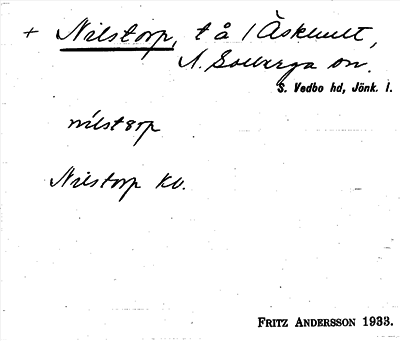 + Nilstorp, t å 1 Äskhult,
N. Solberga sn.
S. Vedbo hd, Jönk. l.
nilstɛrp
Nilstorp kb.
FRITZ ANDERSSON 1933.